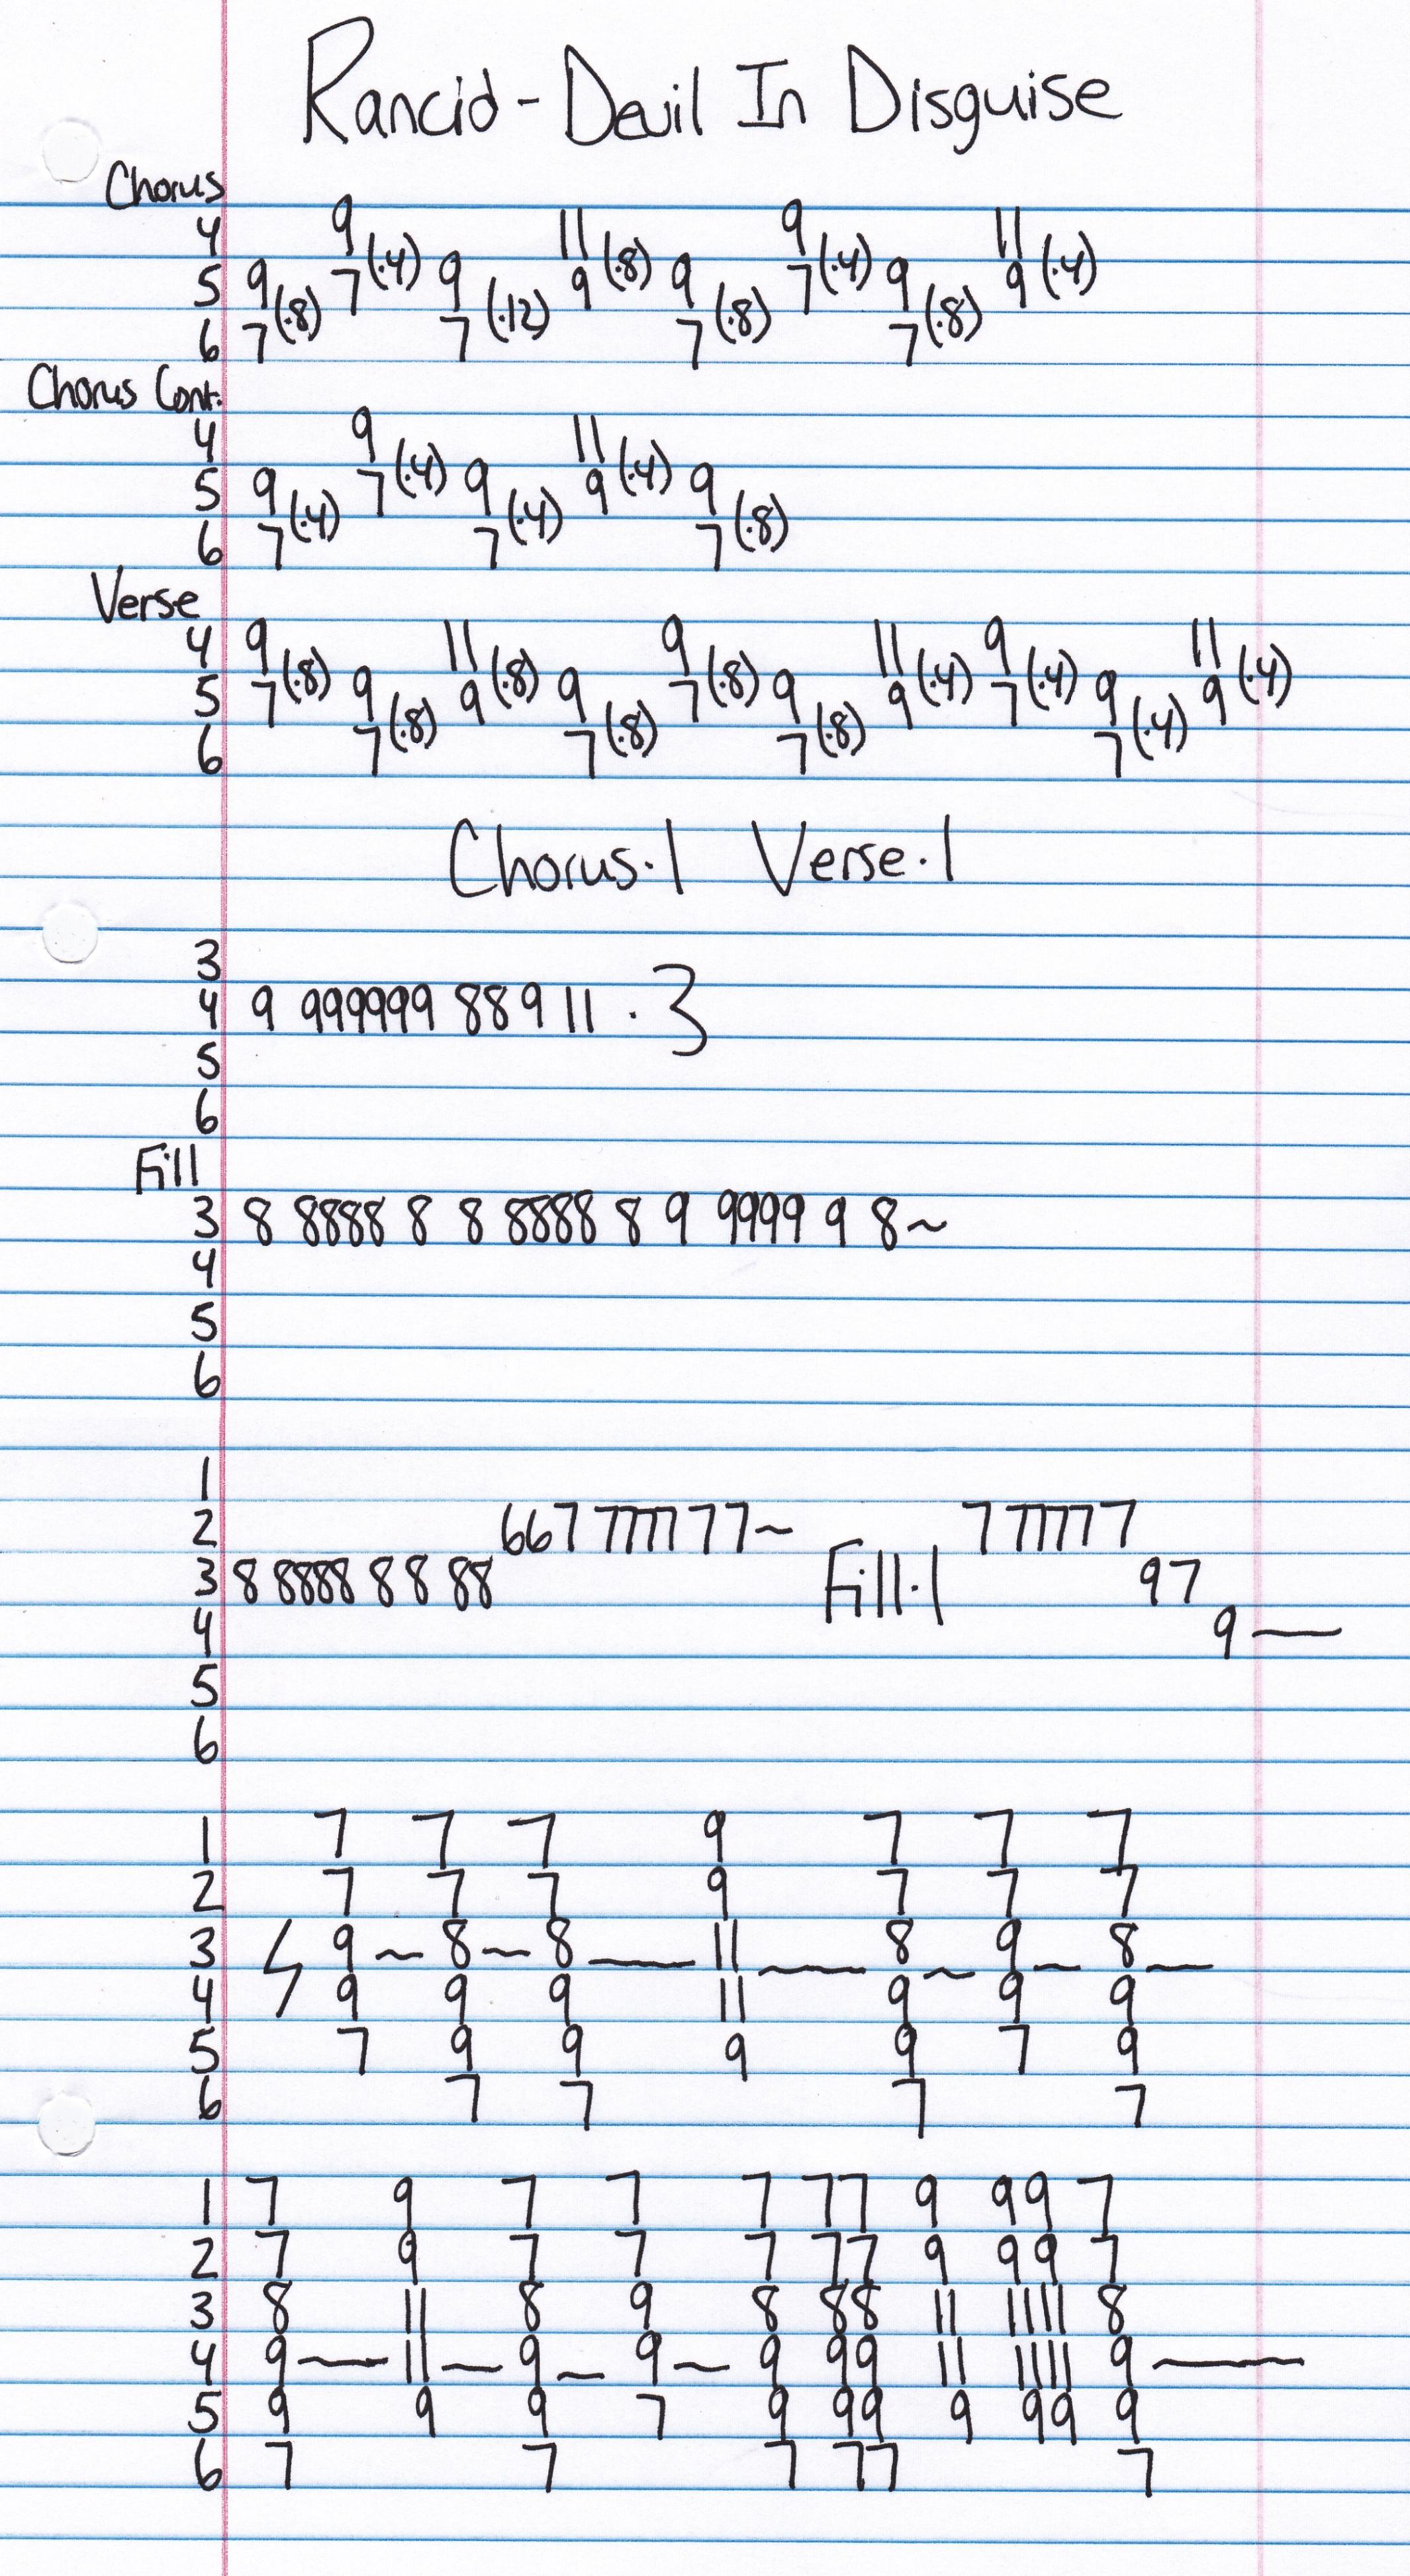 Rancid - Devil In Disguise
Chorus
4 9 11 9 11
5 9 7(.4) 9 9(.8) 9 7(.4) 9 9(.4)
6 7(.8) 7(.12) 7(.8) 7(.8)
Chorus Cont.
4 9 11
5 9 7(.4) 9 9(.4) 9
6 7(.4) 7(.4) 7(.8)
Verse
4 9 11 9 11 9 11
5 7(.8) 9 9(.8) 9 7(.8) 9 9(.4) 7(.4) 9 9(.4)
6 7(.8) 7(.8) 7(.8) 7(.4)
Chorus.1 Verse.1
3
4 9 999999 88 9 11 .3
5
6
Fill
3 8 8888 8 8 8888 8 9 9999 9 8~
4
5
6
1
2 667 7777 77~ 7 77777
3 8 8888 8 8 88 Fill.1 97
4 9—
5
6
1 7 7 7 9 7 7 7
2 7 7 7 9 7 7 7
3 9~8~8—11—8~9~8—
4 9 9 9 11 9 9 9
5 7 9 9 9 9 7 9
6 7 7 7 7
1 7 9 7 7 7 77 9 99 7
2 7 9 7 7 7 77 9 99 7
3 8 11 8 9 8 88 11 1111 8
4 9—11—9~9~9 99 11 1111 9—
5 9 9 9 7 9 99 9 99 9
6 7 7 7 77 7